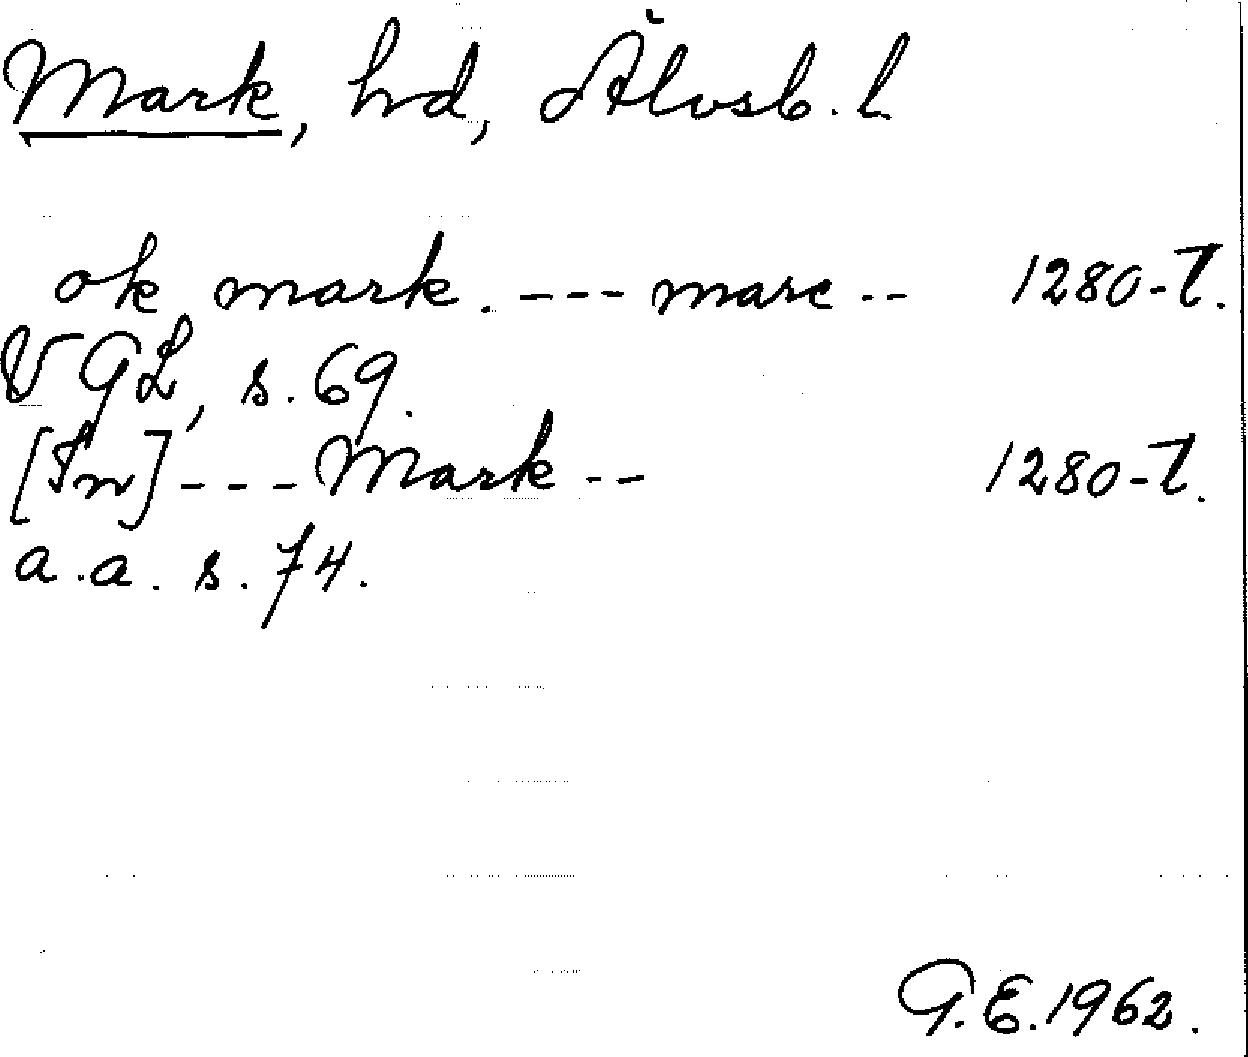 Mark, hd, Älvsb. l
ok mark. --- marc -- 1280-t.
VGL, s. 69.
[In] --- Mark -- 1280-t.
a.a. s. 74.
G.E. 1962.